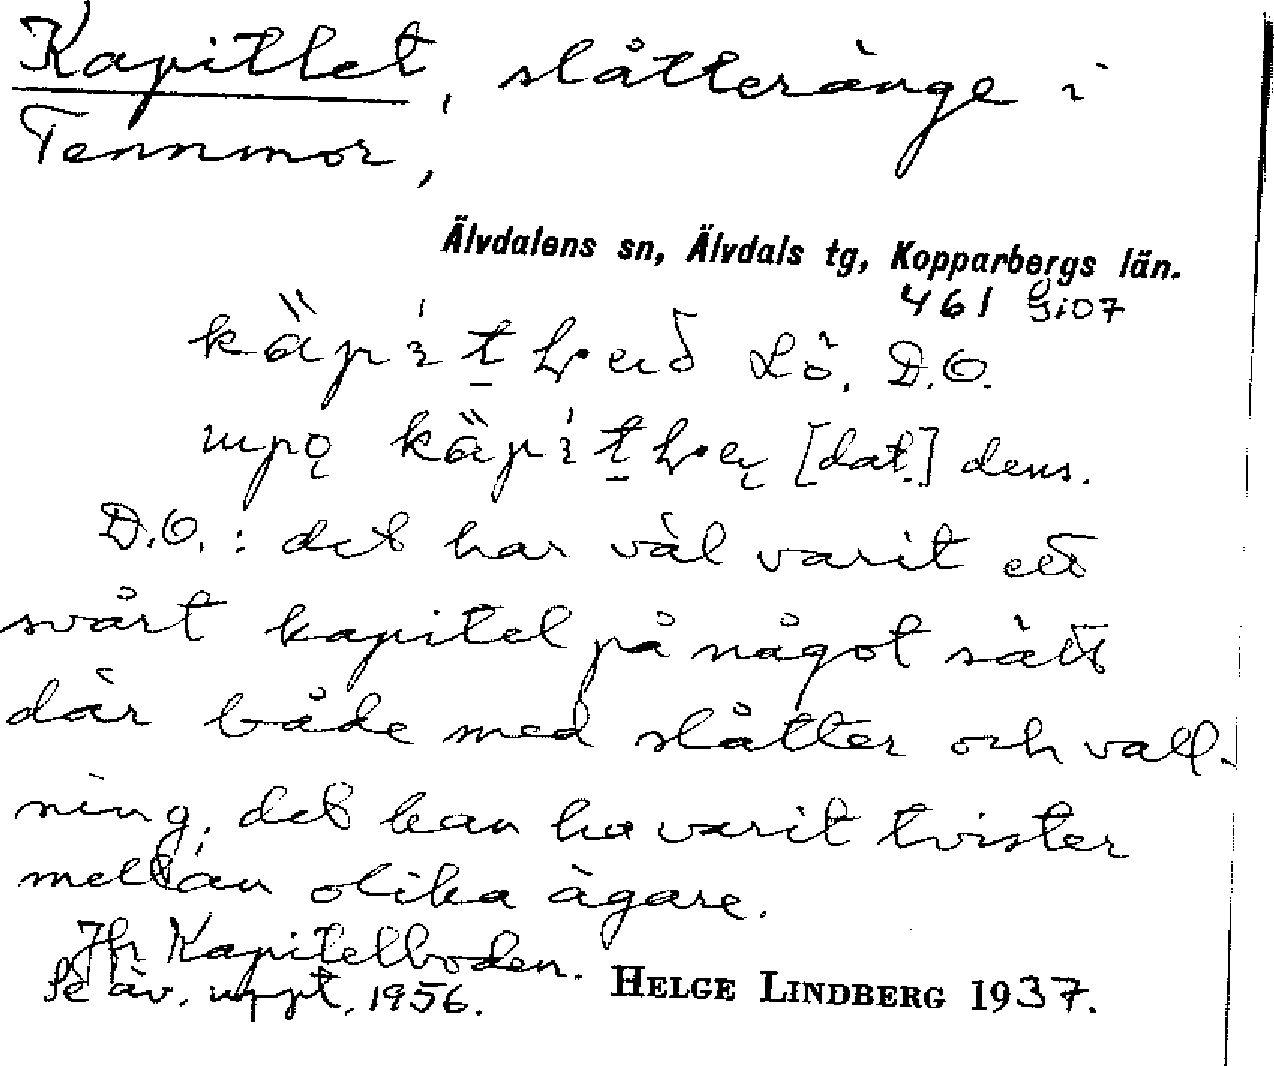 Kapitlet, slåtteränge i
Tennmor,
Älvdalens sn, Älvdals tg, Kopparbergs län.
461 Gi07
Lö. D.O.
[dat.] dens.
D.O.: det har väl varit ett
svårt kapitel på något sätt
där både med slåtter och vall-
ning, det kan ha varit tvister
mellan olika ägare.
Jfr Kapitelboden.
Se äv. uppt. 1956. HELGE LINDBERG 1937.